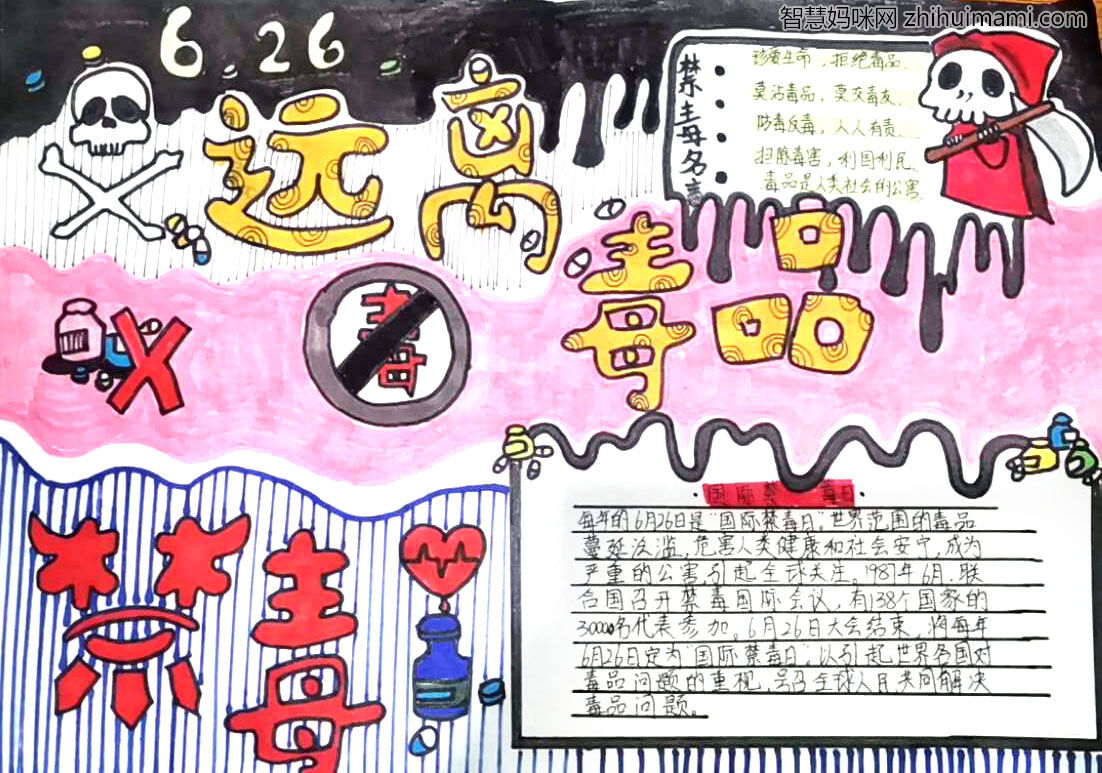 智慧妈咪网 zhihuimami.com
6.26
远离
毒品
禁毒名言
珍爱生命,拒绝毒品.
莫沾毒品,莫交毒友.
防毒反毒,人人有责.
扫除毒害,利国利民.
毒品是人类社会的公害
毒
禁毒
·国际禁毒日·
每年的6月26日是"国际禁毒日"。世界范围的毒品
蔓延泛滥,危害人类健康和社会安宁,成为
严重的公害,引起全球关注。1987年6月.联
合国召开禁毒国际会议,有138个国家的
3000名代表参加。6月26日大会结束,将每年
6月26日定为"国际禁毒日".以引起世界各国对
毒品问题的重视,号召全球人民共同解决
毒品问题。